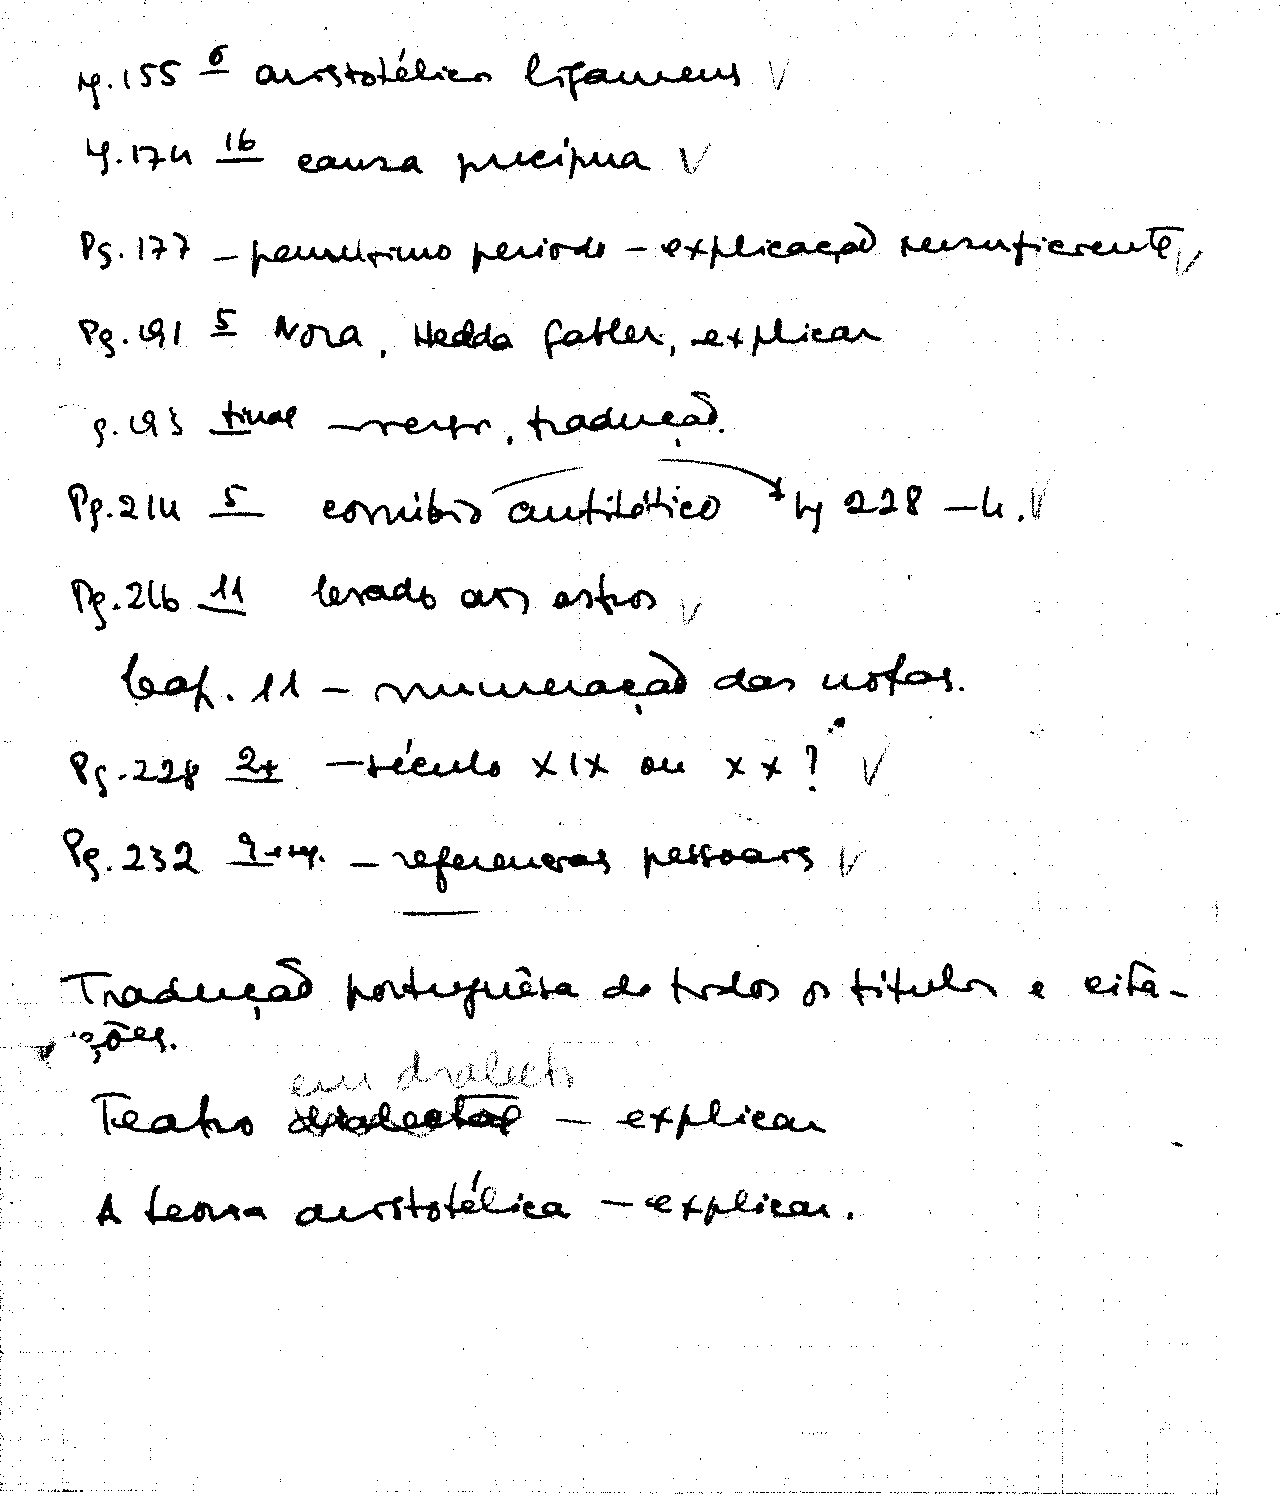 pg. 155 6 aristotélico ligamens V
pg. 174 16 causa precípua V
Pg. 177 - penúltimo período - explicação insuficiente V
Pg. 191 5 Nora, Hedda Gabler, explicar
pg. 193 final - verso, tradução.
Pg. 214 5 convívio antitético pg 228 - 4. V
Pg. 216 11 levado aos astros V
Cap. 11 - numeração das notas.
Pg. 228 2+ - século XIX ou XX? V
Pg. 232 - referencias pessoais V
Tradução portuguêsa de todos os títulos e cita-
ções.
em dialeto
Teatro dialectal - explicar
A teoria aristotélica - explicar.